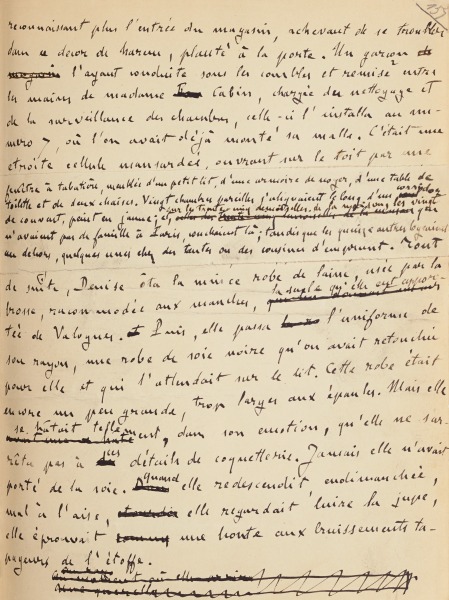 155
reconnaissant plus l'entrée du magasin, achevant de se troubler
dans ce décor de harem, planté à la porte. Un garçon de
magasin l'ayant conduite sous les combles et remise entre
les mains de madame Cabin, chargée du nettoyage et
de la surveillance des chambres, celle-ci l'installa au nu-
méro 7, où l'on avait déjà monté sa malle. C'était une
étroite cellule mansardée, ouvrant sur le toit par une
fenêtre à tabatière, meublée d'un petit lit, d'une armoire de noyer, d'une table de
toilette et de deux chaises. Vingt chambres pareilles s'alignaient le long d'un corridor
de couvent, peint en jaune; et sur les trente-cinq demoiselles de la maison, les vingt
n'avaient pas de famille à Paris couchaient là; tandis que les quinze autres logeaient
au dehors, quelques-unes chez des tantes ou des cousines d'emprunt. Tout
de suite, Denise ôta la mince robe de laine, usée par la
brosse, raccommodée aux manches, la seule qu'elle eût appor-
tée de Valognes. Puis, elle passa l'uniforme de
son rayon, une robe de soie noire qu'on avait retouchée
pour elle et qui l'attendait sur le lit. Cette robe était
encore un peu grande, trop large aux épaules. Mais elle
se hâtait tellement, dans son émotion, qu'elle ne s'ar-
rêta pas à ces détails de coquetterie. Jamais elle n'avait
porté de la soie. Quand elle redescendit endimanchée,
mal à l'aise, elle regardait luire la jupe,
elle éprouvait une honte aux bruissements ta-
pageurs de l'étoffe.